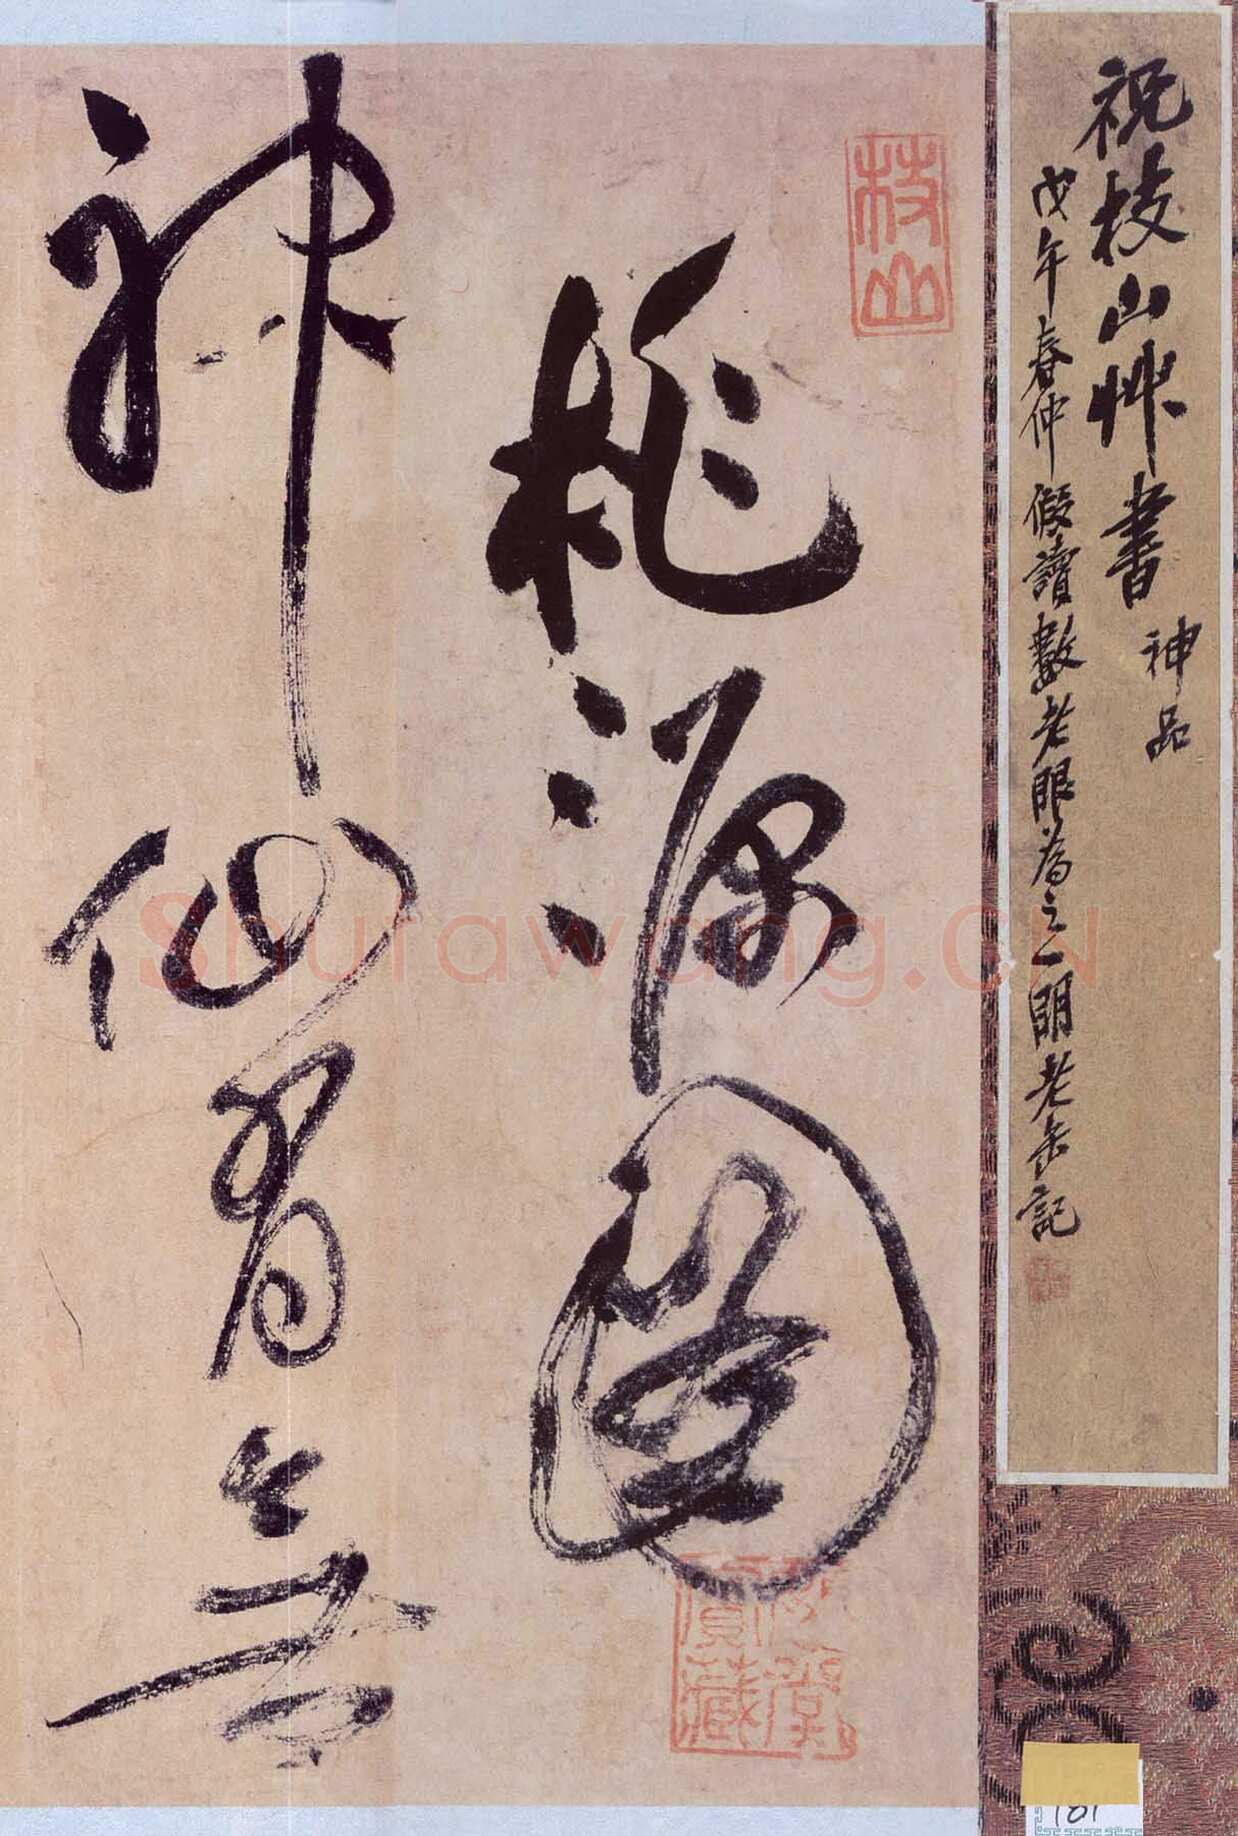 祝枝山艸書
神品
戊午春仲假讀數老眼為之一朙老缶記
枝山
桃源圖
神仙有無
寶藏
Shufawang.CN
181